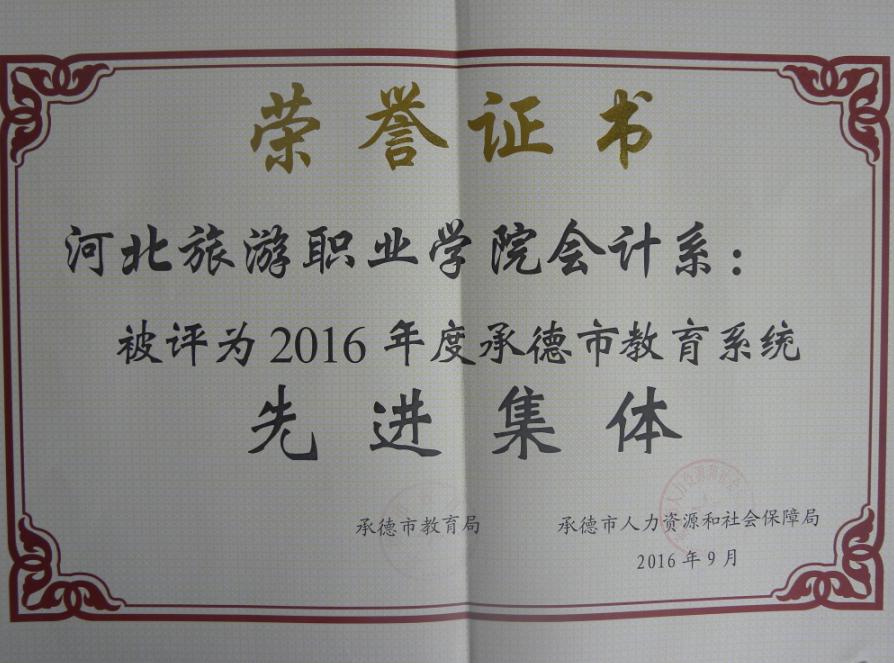 荣誉证书
河北旅游职业学院会计系：
被评为2016年度承德市教育系统
先进集体
承德市教育局 承德市人力资源和社会保障局
2016年9月